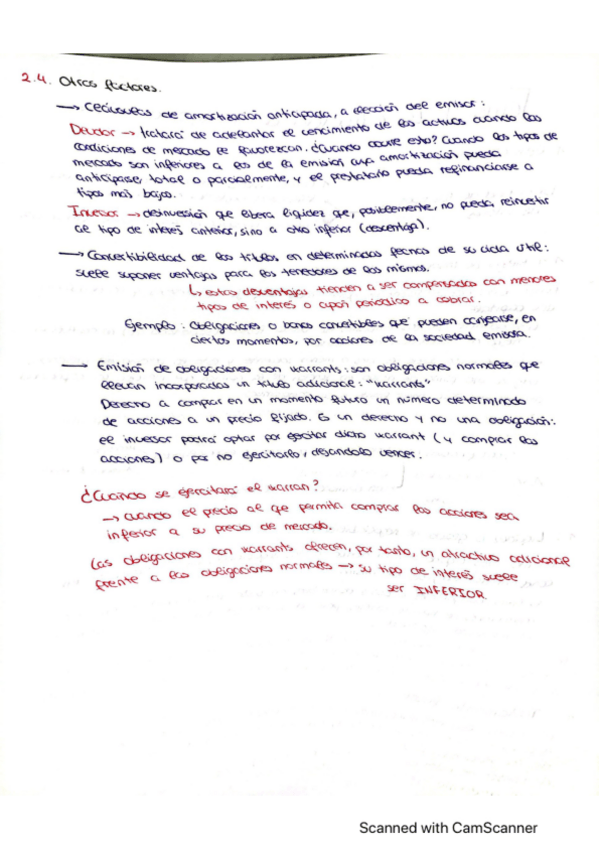 2.4. Otros factores.
→ Cláusulas de amortización anticipada, a elección del emisor:
Deudor → tratará de adelantar el vencimiento de los activos cuando las
condiciones de mercado le favorezcan. ¿Cuándo ocurre esto? Cuando los tipos de
mercado son inferiores a los de la emisión cuya amortización pueda
anticiparse, total o parcialmente, y el prestatario pueda refinanciarse a
tipos más bajos.
Inversor → desinversión que libera liquidez que, posiblemente, no pueda reinvertir
al tipo de interés anterior, sino a otro inferior (desventaja).
→ Convertibilidad de los títulos en determinadas fechas de su vida útil:
suele suponer ventajas para los tenedores de los mismos.
↳ estas desventajas tienden a ser compensadas con menores
tipos de interés o cupón periódico a cobrar.
Ejemplo: obligaciones o bonos convertibles que pueden canjearse, en
ciertos momentos, por acciones de la sociedad emisora.
→ Emisión de obligaciones con warrants: son obligaciones normales que
llevan incorporadas un título adicional: "warrants"
Derecho a comprar en un momento futuro un número determinado
de acciones a un precio fijado. Es un derecho y no una obligación:
el inversor podrá optar por ejercitar dicho warrant (y comprar las
acciones) o por no ejercitarlo, dejándolo vencer.
¿Cuándo se ejercitará el warran?
→ cuando el precio al que permita comprar las acciones sea
inferior a su precio de mercado.
Las obligaciones con warrants ofrecen, por tanto, un atractivo adicional
frente a las obligaciones normales → su tipo de interés suele
ser INFERIOR
Scanned with CamScanner